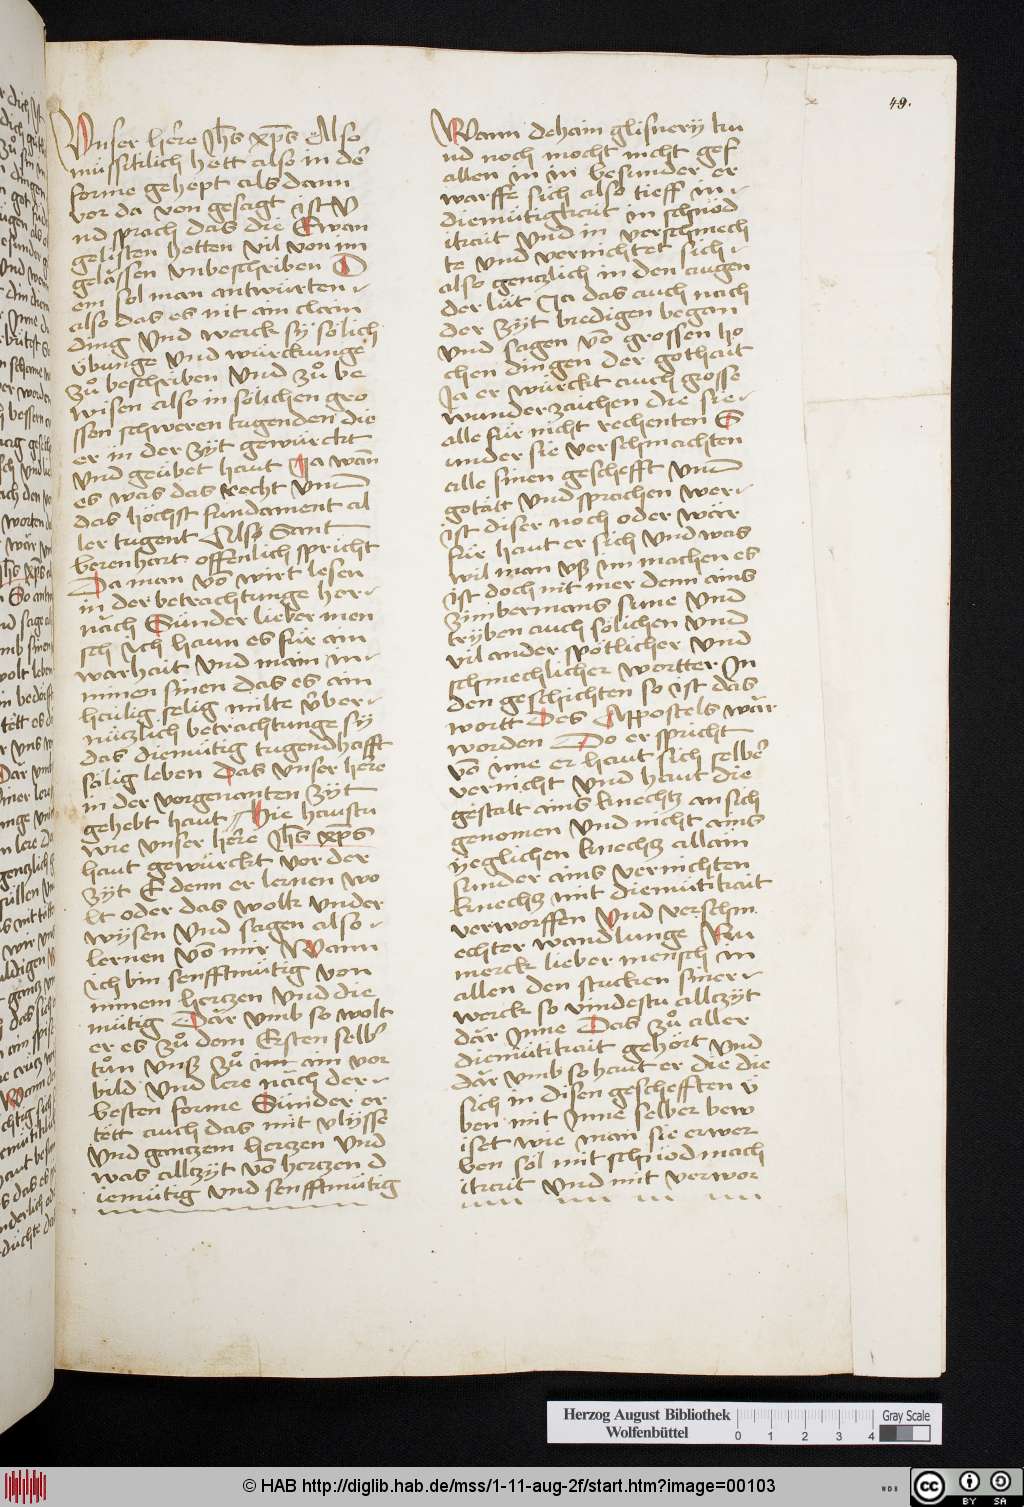 49.
Vnser herre Jhs xps Also
müssitklich hett also in der
forme gehept als dann
vor da von gesagt ist V
nd sprach das die Ewan
gelisten hetten vil von im
gelässen vnbeschriben D
em sol man antwürten
also das es nit ain clain
ding Vnd werck sy sölich
übunge Vnd würckunge
zů beschriben Vnd zů be
wisen also in sölichen gro
ssen schweren tugenden die
er in der zyt gewürckt
Vnd geübet haut Ja wañ
es was das recht Vnd
das höchst fundament al
ler tugent Also Sant
berenhart offenlich spricht
Da man võ wirt lesen
in der betrachtunge her
näch Sünder lieber men
sch Ich haun es für ain
warhait Vnd main in
minen sinen das es ain
hailig selig milte über
nüczlich betrachtunge sy
das diemütig tugendhafft
sälig leben das vnser herre
in der vorgenanten zyt
gehebt haut Hie haustu
wie vnser herre Jhs xps
haut gewürckt vor der
zyt E denn er lernen wo
lt oder das wolk vnder
wysen Vnd sagen also
lernen võ mir Wann
ich bin senfftmütig von
minem herczen Vnd die
mütig Där vmb so wolt
er es zů dem Ersten selb
tůn vnß zů im ain vor
bild Vnd lere näch der
besten forme Sünder er
tett auch das mit vlysse
Vnd ganczem herczen Vnd
was allczyt võ herczen d
iemütig vnd senfftmütig
Wann dehain glisnery ku
nd noch mocht nicht gesf
allen in in besunder er
warffe sich also tieff in
diemütigkait in schnöd
ikait Vnd in verschmech
te Vnd vernichtet sich
also genczlich in den augen
der lüt Ja das auch nach
der zyt bredigen began
Vnd sagen võ grossen ho
chen dingen der gothait
Ja er würckt auch gosse
wunderzaichen die sie
alle für nicht rechenten S
under sie verschmachten
alle sinen geschefft Vnd
getätt Vnd sprachen wer
ist diser noch oder wär
für haut er sich Vnd was
wil man vß im machen es
ist doch nit mer denn ains
zimbermans sune Vnd
tryben auch sölichen Vnd
vil ander spötlicher Vnd
schmechlicher wortter In
den geschichten so ist das
wortt Des Appostels wär
worden Do er spricht
võ ime er haut sich selber
vernicht Vnd haut die
gestalt ains knechtz an sich
genomen Vnd nicht ains
yeglichen knechtz allain
sunder ains vernichten
knechtz mit diemütikait
verworffen Vnd verschm
echter wandlunge Nu
merck lieber mensch in
allen den stucken siner
werck so vindestu allczyt
där Inne Das zů aller
diemütikait gehört Vnd
där vmb so haut er die die
sich in disen geschefften ü
ben mit Inne selber bew
iset wie man sie erwer
ben söl mit schnöd mach
ikait Vnd mit verwor
Herzog August Bibliothek
Wolfenbüttel
0 1 2 3 4
Gray Scale
© HAB http://diglib.hab.de/mss/1-11-aug-2f/start.htm?image=00103
WDB
cc BY SA